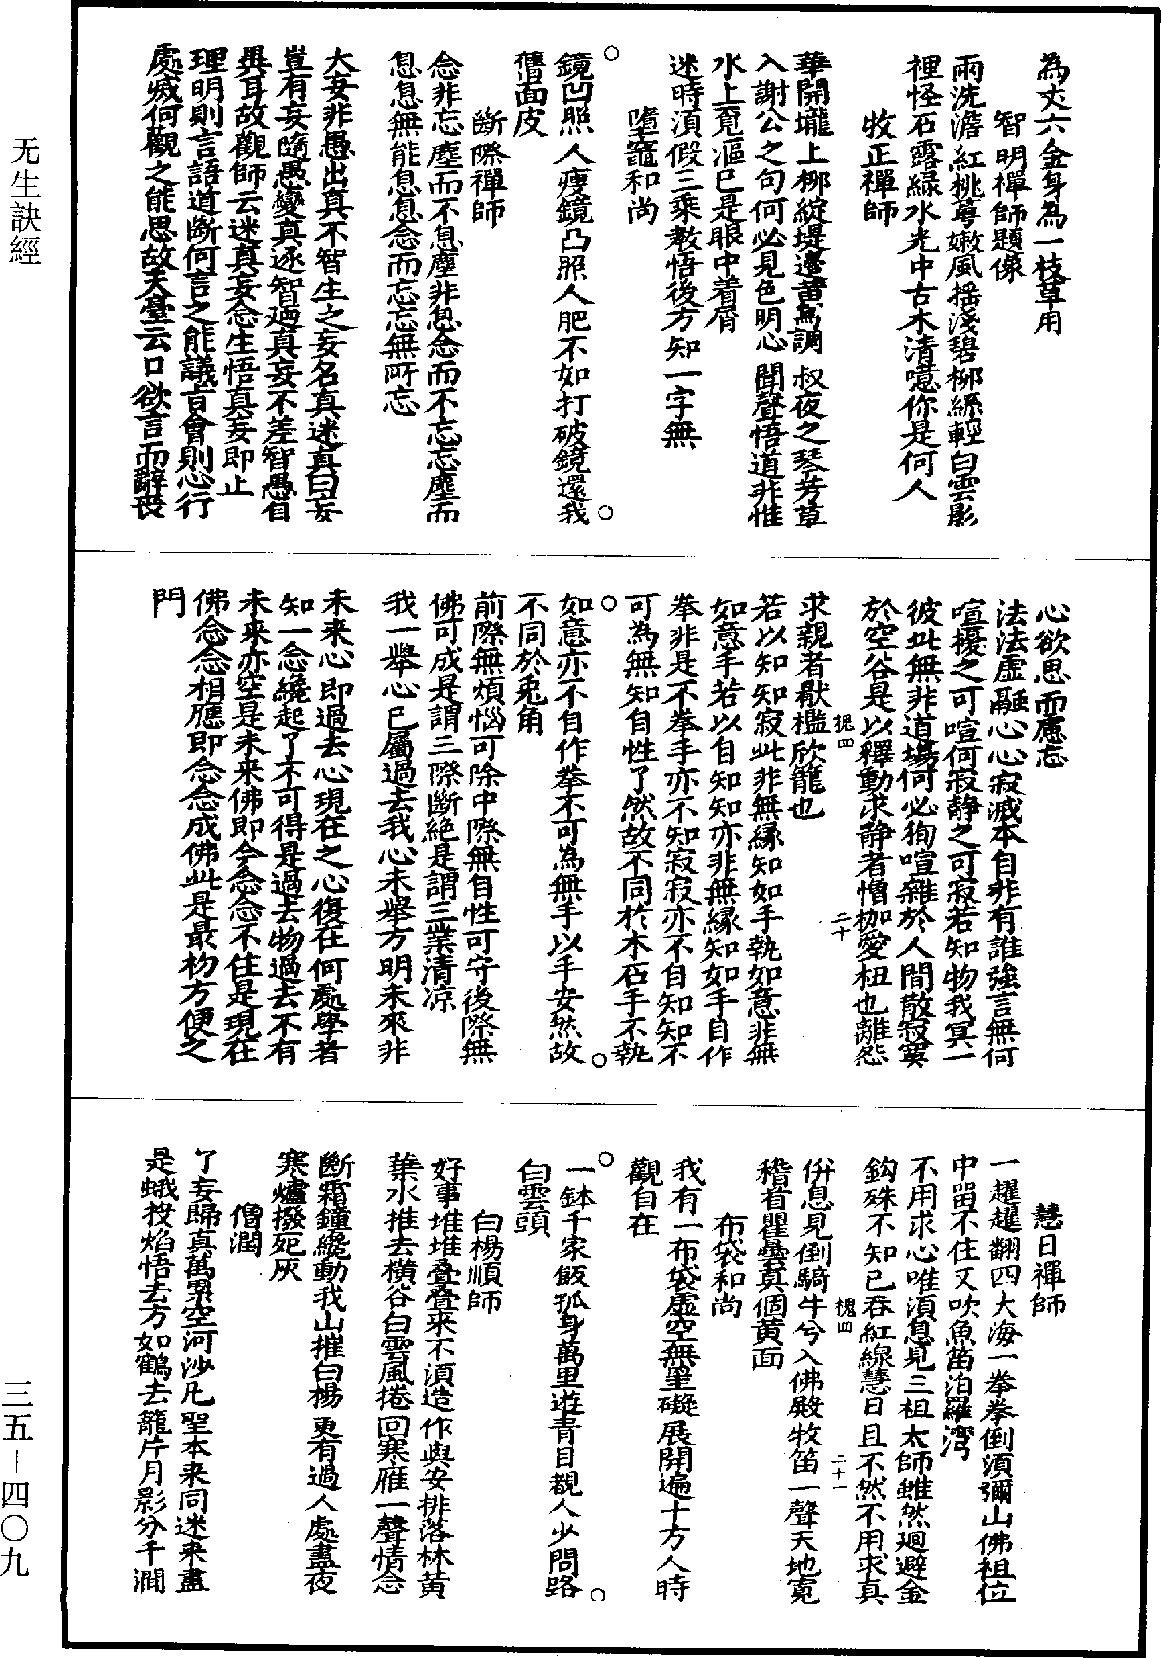 為丈六金身為一枝草用
智明禪師題像
雨洗澹紅桃萼嫩風搖淺碧柳絲輕白雲影
裡怪石露綠水光中古木清噫你是何人
牧正禪師
華開壠上柳綻堤邊黄鶯調叔夜之琴芳草
入謝公之句何必見色明心聞聲悟道非惟
水上覓漚已是眼中着屑
迷時須假三乘教悟後方知一字無
墮竈和尚
○
鏡凹照人瘦鏡凸照人肥不如打破鏡還我
○
舊面皮
斷際禪師
念非忘塵而不息塵非息念而不忘忘塵而
息息無能息息念而忘忘無所忘
大妄非愚出真不智生之妄名真迷真曰妄
豈有妄隨愚變真逐智迴真妄不差智愚自
異耳故觀師云迷真妄念生悟真妄即止
理明則言語道斷何言之能議旨會則心行
處滅何觀之能思故天臺云口欲言而辭喪
心欲思而慮忘
法法虛融心心寂滅本自非有誰強言無何
喧擾之可喧何寂靜之可寂若知物我冥一
彼此無非道場何必狥喧雜於人間散寂寞
於空谷是以釋動求静者憎枷愛杻也離怨
槐四
二十
求親者猒檻欣籠也
若以知知寂此非無緣知如手執如意非無
如意手若以自知知亦非無緣知如手自作
拳非是不拳手亦不知寂寂亦不自知知不
可為無知自性了然故不同於木石手不執
○
如意亦不自作拳不可為無手以手安然故
○
不同於兎角
前際無煩惱可除中際無自性可守後際無
佛可成是謂三際斷絕是謂三業清凉
我一舉心已屬過去我心未舉方明未來非
未来心即過去心現在之心復在何處學者
知一念纔起了不可得是過去物過去不有
未来亦空是未来佛即今念念不住是現在
佛念念相應即念念成佛此是最初方便之
門
慧日禪師
一趯趯翻四大海一拳拳倒須彌山佛祖位
中留不住又吹魚笛泊羅灣
不用求心唯須息見三祖大師雖然迴避金
鈎殊不知已吞紅線慧日且不然不用求真
槐四
二十一
併息見倒騎牛兮入佛殿牧笛一聲天地寛
稽首瞿曇真個黄面
布袋和尚
我有一布袋虛空無罣礙展開遍十方人時
觀自在
○
一鉢千家飯孤身萬里遊青目覩人少問路
○
白雲頭
白楊順師
好事堆堆叠叠来不須造作與安排落林黄
葉水推去橫谷白雲風捲回寒雁一聲情念
斷霜鐘纔動我山摧白楊更有過人處盡夜
寒爐撥死灰
僧潤
了妄歸真萬累空河沙凡聖本來同迷來盡
是蛾投焰悟去方如鶴去籠片月影分千澗
无生訣經
三五－四〇九